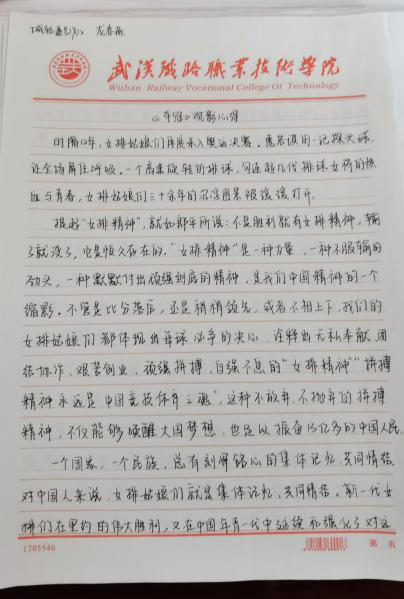 武汉铁路职业技术学院
Wuhan Railway Vocational College Of Technology
《夺冠》观影心得
时隔12年，女排姑娘们再度杀入奥运决赛。惠若琪的一记探头球，
让全场屏住呼吸。一个高速旋转的排球，勾连起几代排球女将的热
血与青春，女排姑娘们三十余年的沉浮图景被缓缓打开。
提起"女排精神"，就如郎平所说：不是胜利就有女排精神，输
了就没了，也是恒久存在的。"女排精神"是一种力量，一种不服输的
劲头，一种默默付出顽强到底的精神，是我们中国精神的一个
缩影。不管是比分落后，还是稍稍领先，或者不相上下，我们的
女排姑娘们都体现出每球必争的决心，诠释出无私奉献，团
结协作、艰苦创业、顽强拼搏、自强不息的"女排精神""拼搏
精神永远是中国竞技体育之魂"，这种不放弃、不抛弃的拼搏
精神，不仅能够唤醒大国梦想，也足以振奋13亿多的中国人民
一个国家，一个民族，总有刻骨铭心的集体记忆、共同情结。
对中国人来说，女排姑娘们就是集体记忆、共同情结。新一代女
排们在里约的伟大胜利，又在中国年青一代中延续和强化了对这
1705546
第 页